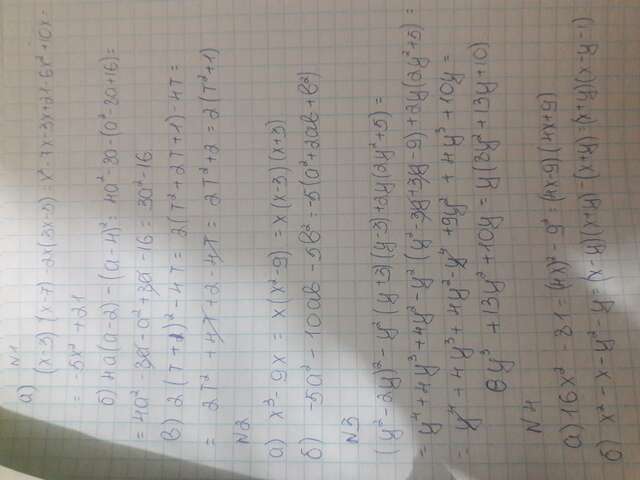 N1
а) (x-3)(x-7)-2x(3x-5)=x²-7x-3x+21-6x²+10x=
= -5x²+21
б) 4a(a-2)-(a-4)²=4a²-8a-(a²-8a+16)=
=4a²-8a-a²+8a-16=3a²-16
в) 2(T+1)²-4T=2(T²+2T+1)-4T=
=2T²+4T+2-4T=2T²+2=2(T²+1)
N2
а) x³-9x=x(x²-9)=x(x-3)(x+3)
б) -5a²-10ab-5b²=-5(a²+2ab+b²)
N3
(y²-2y)²-y²(y+3)(y-3)+2y(2y²+5)=
=y⁴+4y³+4y²-y²(y²-3y+3y-9)+2y(2y²+5)=
=y⁴+4y³+4y²-y⁴+9y²+4y³+10y=
8y³+13y²+10y=y(8y²+13y+10)
N4
а) 16x²-81=(4x)²-9²=(4x-9)(4x+9)
б) x²-x-y²-y=(x-y)(x+y)-(x+y)=(x+y)(x-y-1)